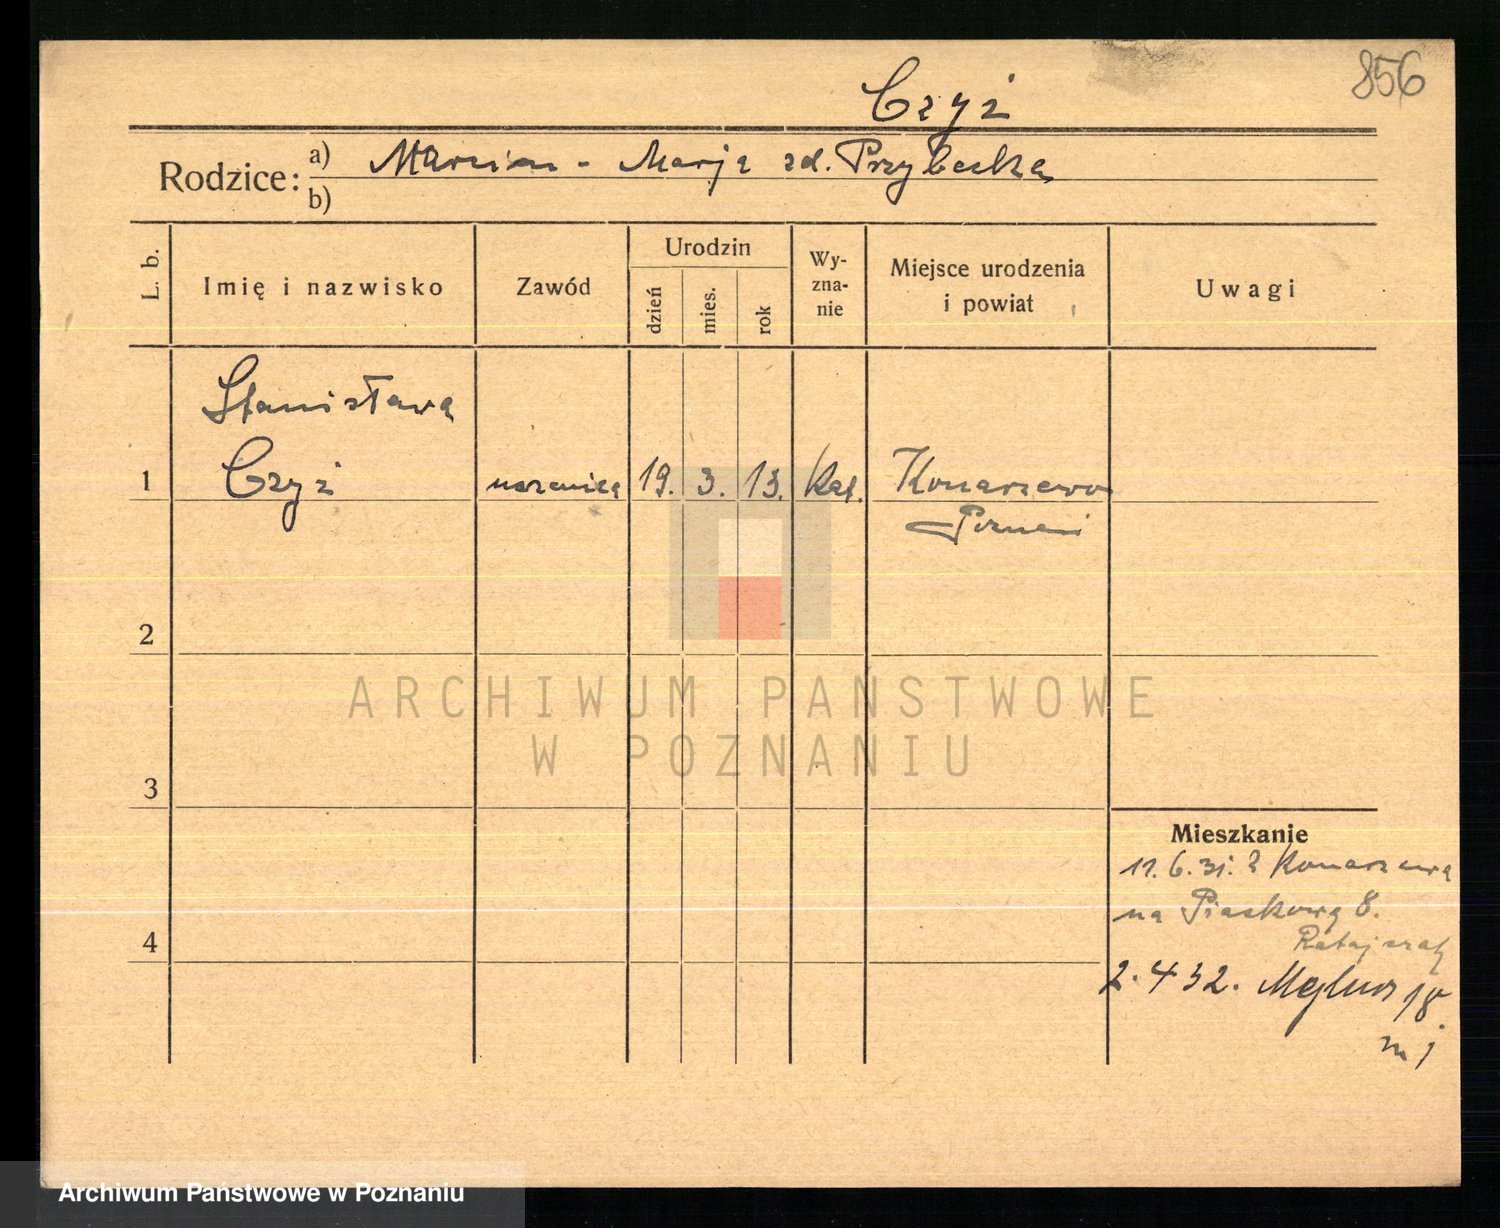 856
Czyż
Rodzice: a) Marcin - Marja zd. Przybecka
b)
L. b.
Imię i nazwisko
Zawód
Urodzin
dzień
mies.
rok
Wy-
zna-
nie
Miejsce urodzenia
i powiat
Uwagi
Stanisława
1 Czyż uczenica 19. 3. 13. Kat. Konarzewo
Poznań
2
3
4
Mieszkanie
11.6.31. z Konarzewa
na Piaskową 8.
Ratajczak
2.4 32. 18.
m 1
ARCHIWUM PAŃSTWOWE
W POZNANIU
Archiwum Państwowe w Poznaniu